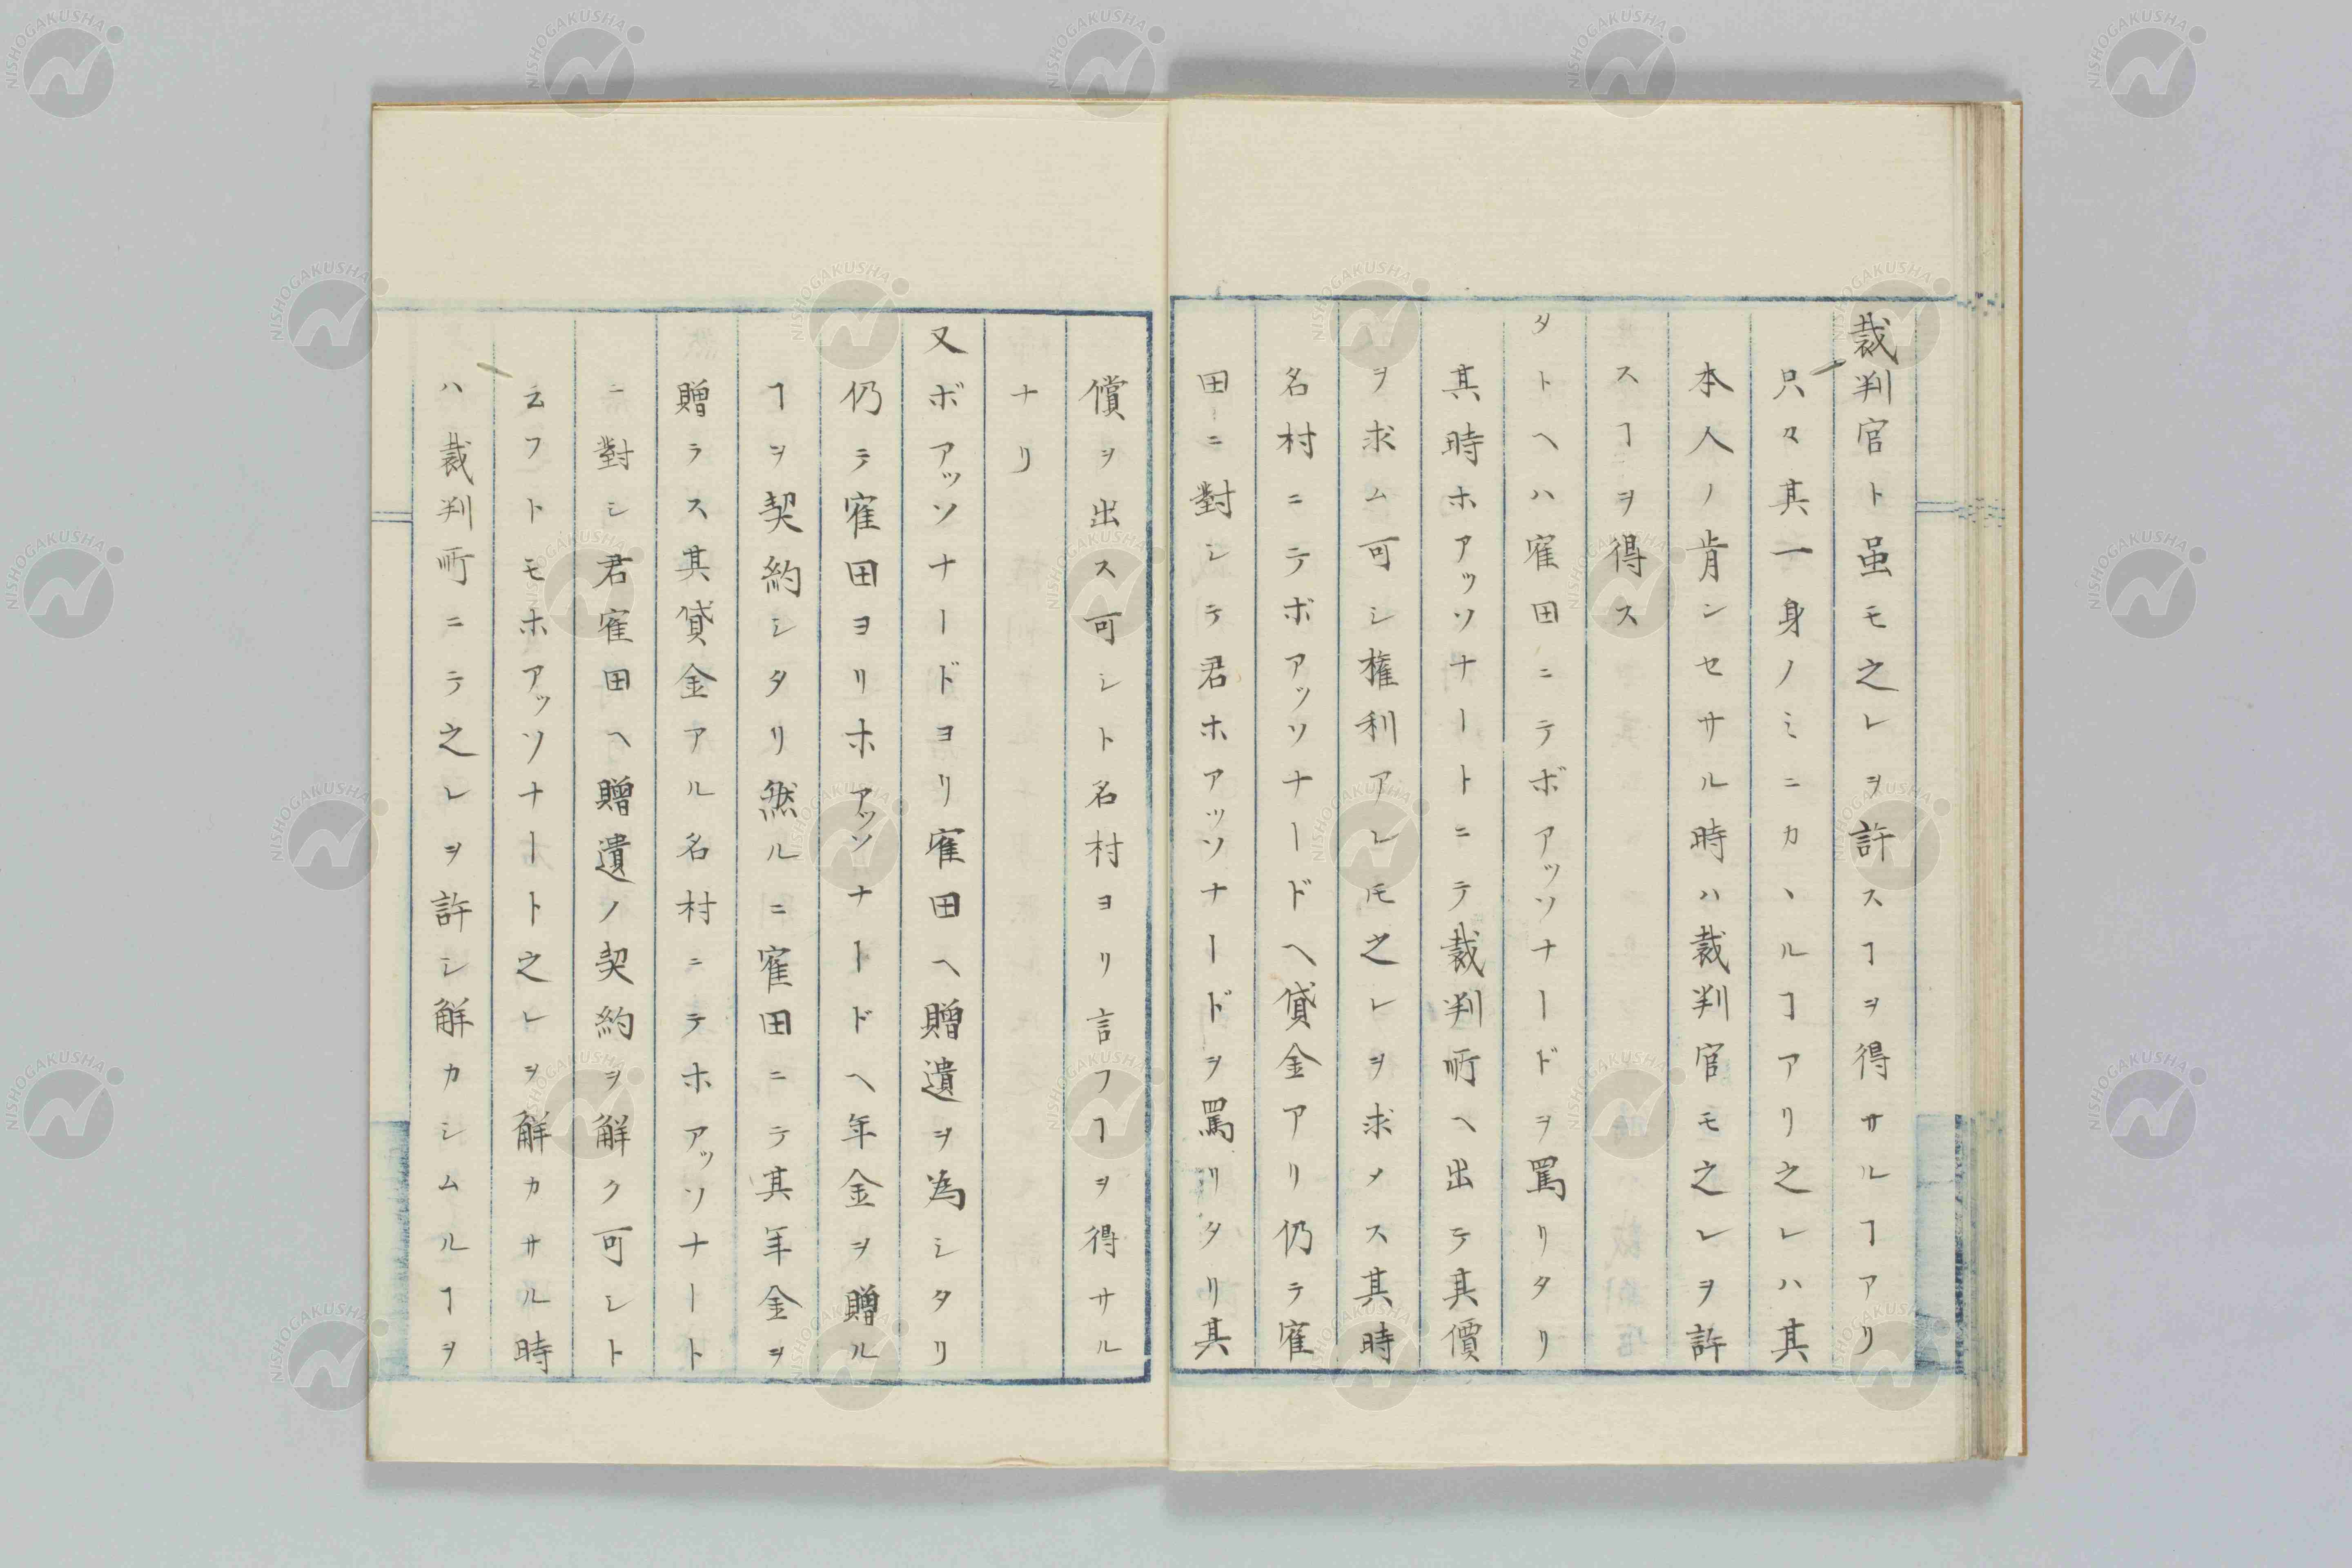 裁判官ト虽モ之レヲ許スヿヲ得サルヿアリ
只々其一身ノミニカヽルヿアリ之レハ其
本人ノ肯ンセサル時ハ裁判官モ之レヲ許
スヿヲ得ス
タトヘハ寉田ニテボアッソナードヲ罵リタリ
其時ホアッソナートニテ裁判所ヘ出テ其價
ヲ求ム可シ権利アレ𪜈之レヲ求メス其時
名村ニテボアッソナードヘ貸金アリ仍テ寉
田ニ對シテ君ホアッソナードヲ罵リタリ其
償ヲ出ス可シト名村ヨリ言フヿヲ得サル
ナリ
又ボアッソナードヨリ寉田ヘ贈遺ヲ為シタリ
仍テ寉田ヨリホアッソナードヘ年金ヲ贈ル
ヿヲ契約シタリ然ルニ寉田ニテ其年金ヲ
贈ラス其貸金アル名村ニテホアッソナート
ニ對シ君寉田ヘ贈遺ノ契約ヲ解ク可シト
云フトモホアッソナート之レヲ解カサル時
ハ裁判所ニテ之レヲ許シ解カシムルヿヲ
NISHOGAKUSHA